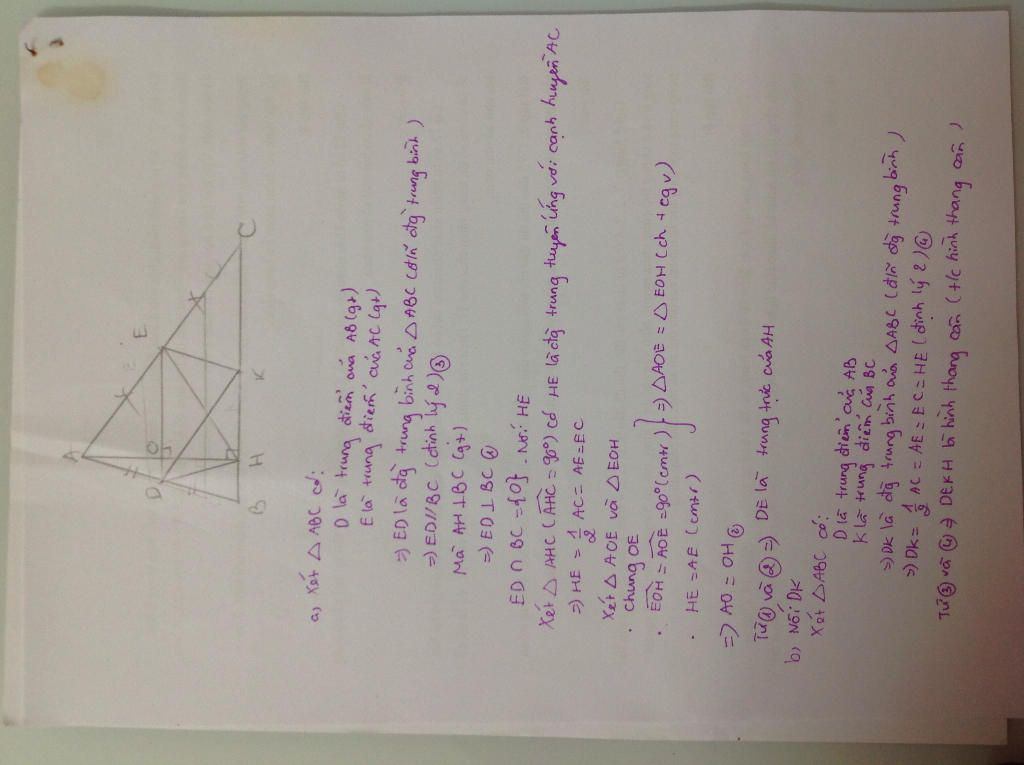 A
E
E
D
O
B
H
K
C
a) Xét △ ABC có:
D là trung điểm của AB (gt)
E là trung điểm của AC (gt)
=) ED là đg trung bình của △ ABC (đ/n đg trung bình)
=) ED // BC (định lý 2) ③
Mà AH ⊥ BC (gt)
=) ED ⊥ BC ①
ED ∩ BC = {O}. Nối HE
Xét △ AHC (AHC = 90°) có HE là đg trung tuyến ứng với cạnh huyền AC
=) HE = 1/2 AC = AE = EC
Xét △ AOE và △ EOH
. Chung OE
. EOH = AOE = 90° (cmtr) } =) △AOE = △ EOH (ch + cgv)
. HE = AE (cmtr)
=) AO = OH ②
Từ ① và ② =) DE là trung trực của AH
b) Nối DK
Xét △ ABC có:
D là trung điểm của AB
K là trung điểm của BC
=) DK là đg trung bình của △ ABC (đ/n đg trung bình)
=) DK = 1/2 AC = AE = EC = HE (định lý 2) ④
Từ ③ và ④ =) DEKH là hình thang cân (t/c hình thang cân)